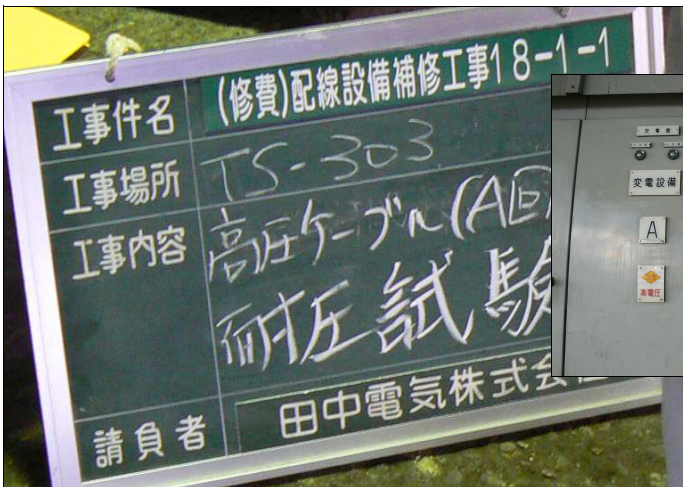 工事件名
(修費)配線設備補修工事18-1-1
工事場所
TS-303
工事内容
高圧ケーブル(A
耐圧試験
請負者
田中電気株式会
変電設備
A
高電圧